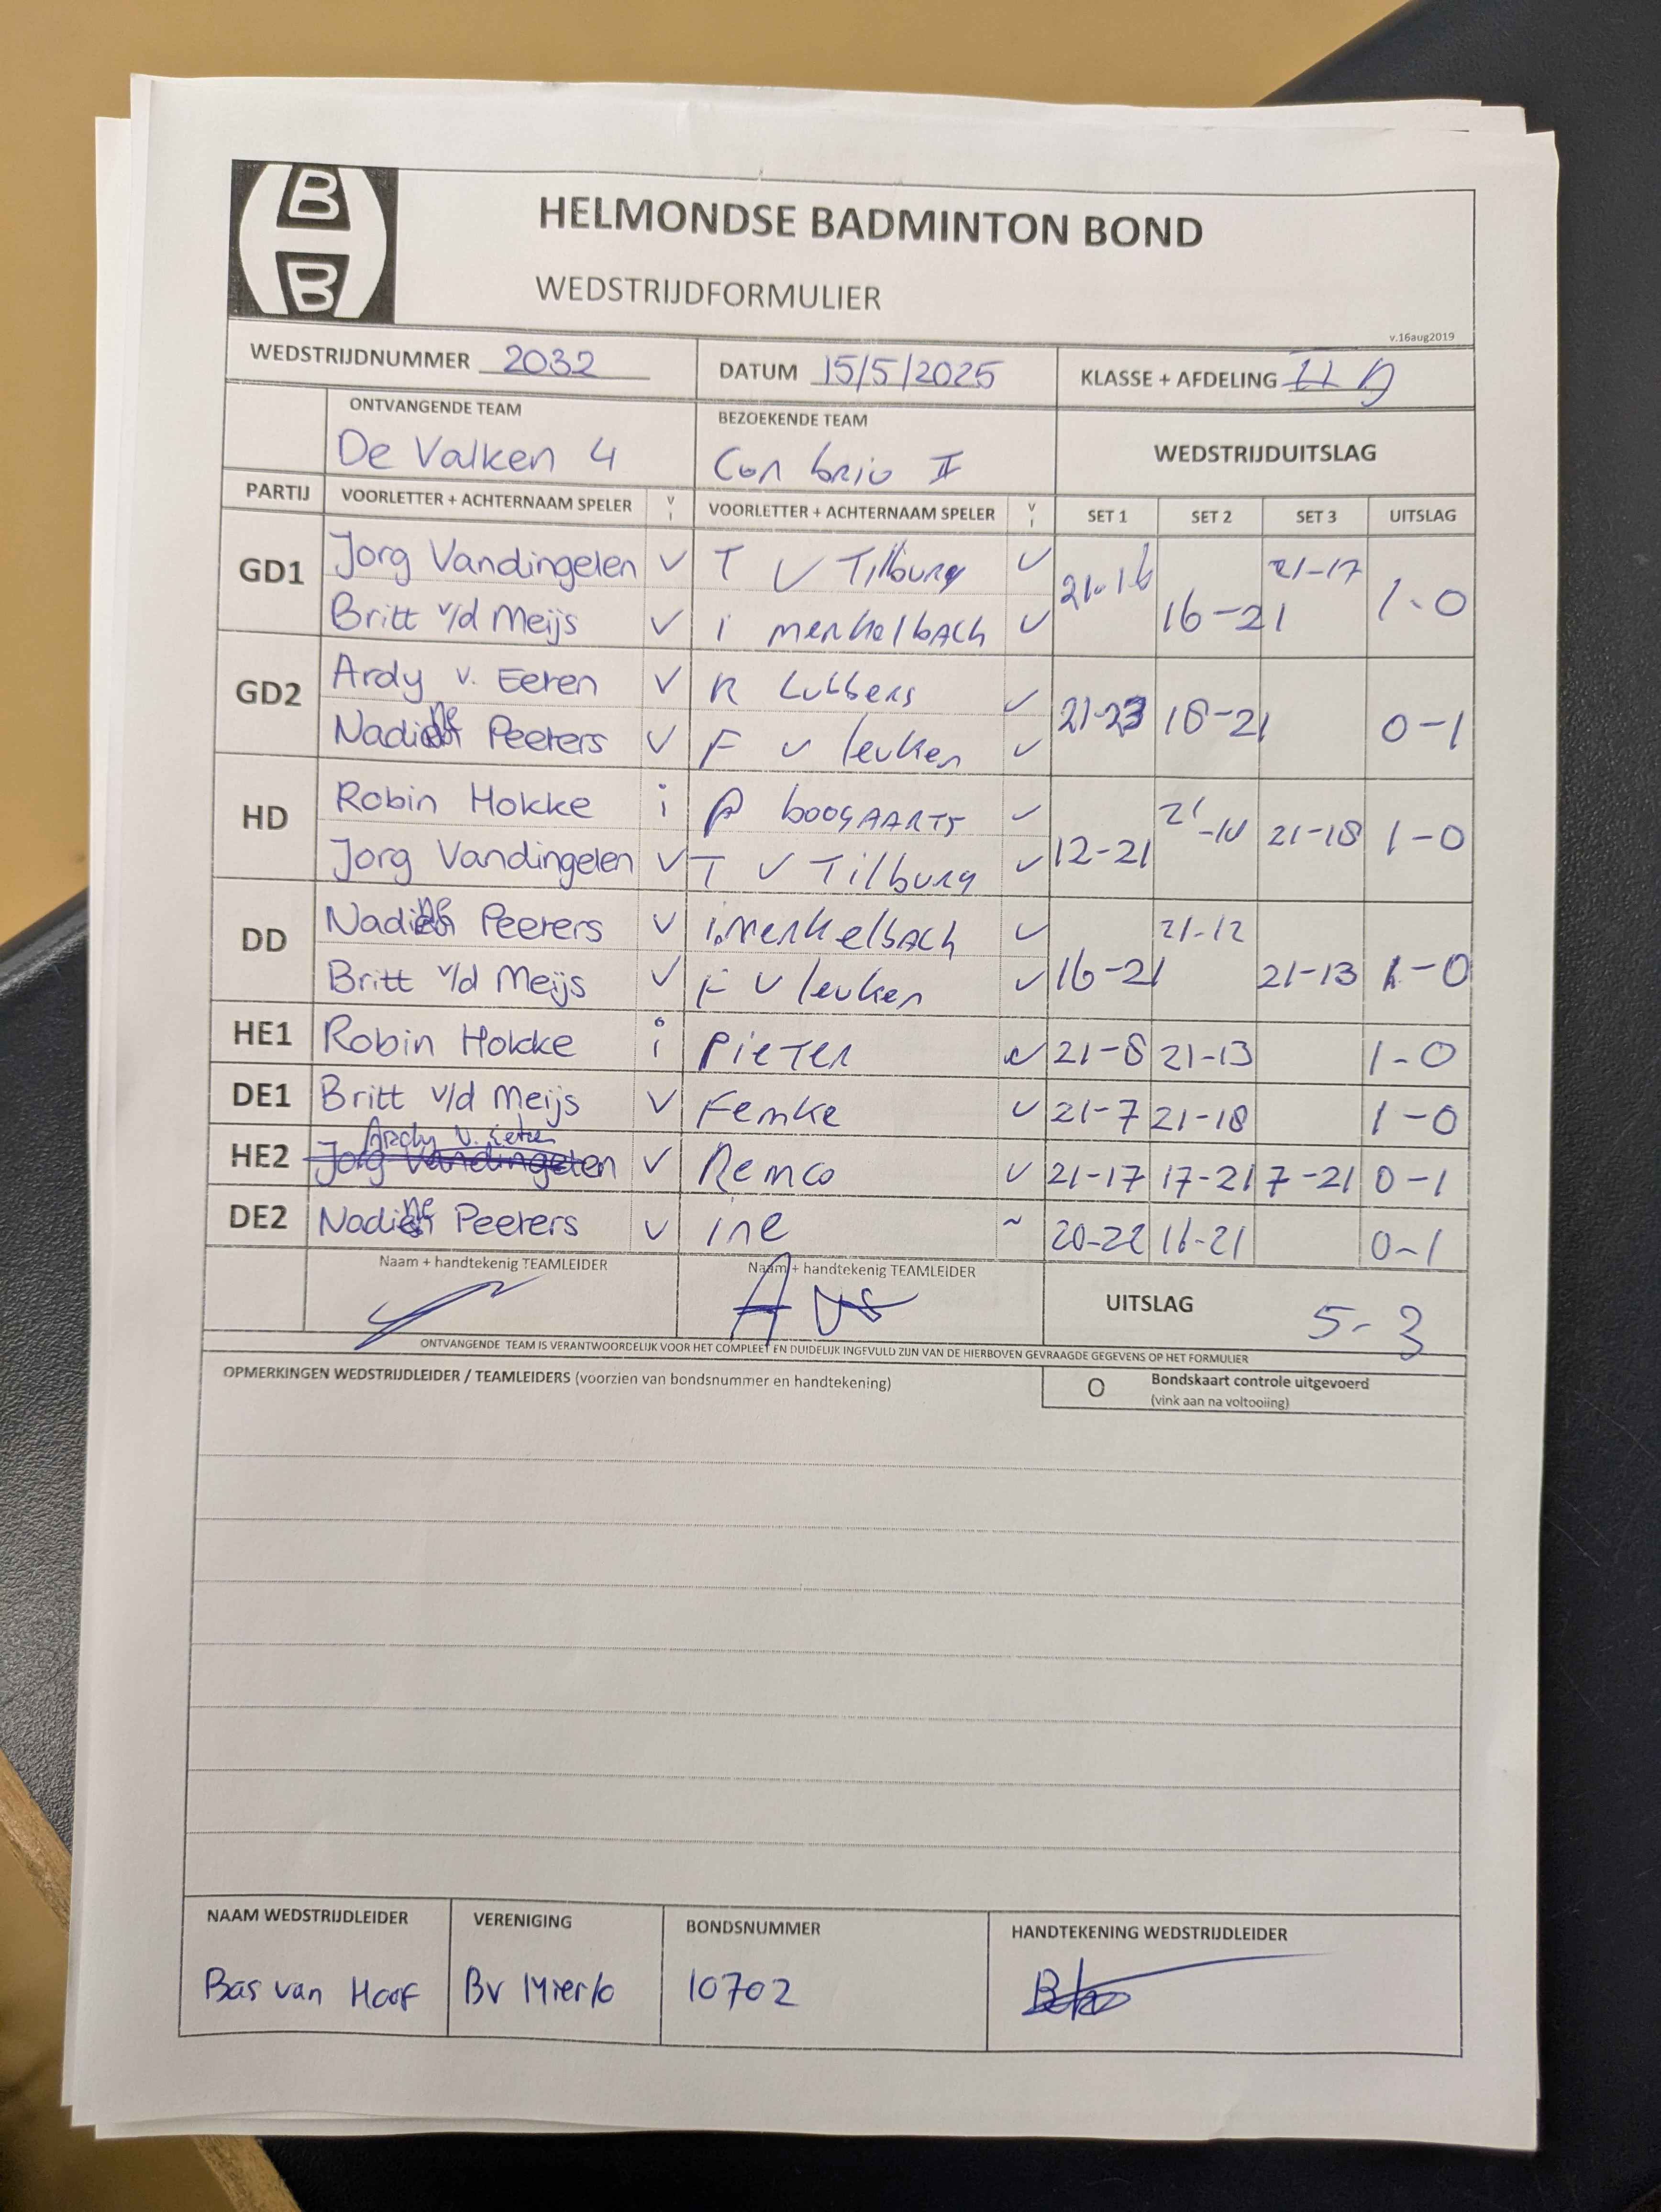 B
B
HELMONDSE BADMINTON BOND
WEDSTRIJDFORMULIER
v.16aug2019
WEDSTRIJDNUMMER 2032 DATUM 15/5/2025 KLASSE + AFDELING
ONTVANGENDE TEAM BEZOEKENDE TEAM WEDSTRIJDUITSLAG
De Valken 4 Con brio II
PARTIJ VOORLETTER + ACHTERNAAM SPELER V I VOORLETTER + ACHTERNAAM SPELER V I SET 1 SET 2 SET 3 UITSLAG
GD1 Jorg Vandingelen V T V Tilburg V 21-16 16-21 21-17 1-0
Britt v/d Meijs V i merkelbach V
GD2 Ardy v. Eeren V R Lubbers V 21-23 18-21 0-1
Nadine Peeters V F v leuken V
HD Robin Hokke i P boogaarts V 12-21 21-10 21-18 1-0
Jorg Vandingelen V T V Tilburg V
DD Nadine Peeters V i merkelbach V 16-21 21-12 21-13 1-0
Britt v/d Meijs V F v leuken V
HE1 Robin Hokke i Pieter V 21-8 21-13 1-0
DE1 Britt v/d Meijs V Femke V 21-7 21-18 1-0
Ardy v. Eeren
HE2 Jorg Vandingelen V Remco V 21-17 17-21 7-21 0-1
DE2 Nadine Peeters V ine 20-22 16-21 0-1
Naam + handtekenig TEAMLEIDER Naam + handtekenig TEAMLEIDER UITSLAG 5-3
ONTVANGENDE TEAM IS VERANTWOORDELIJK VOOR HET COMPLEET EN DUIDELIJK INGEVULD ZIJN VAN DE HIERBOVEN GEVRAAGDE GEGEVENS OP HET FORMULIER
OPMERKINGEN WEDSTRIJDLEIDER / TEAMLEIDERS (voorzien van bondsnummer en handtekening) O Bondskaart controle uitgevoerd
(vink aan na voltooiing)
NAAM WEDSTRIJDLEIDER VERENIGING BONDSNUMMER HANDTEKENING WEDSTRIJDLEIDER
Bas van Hoof BV Mierlo 10702